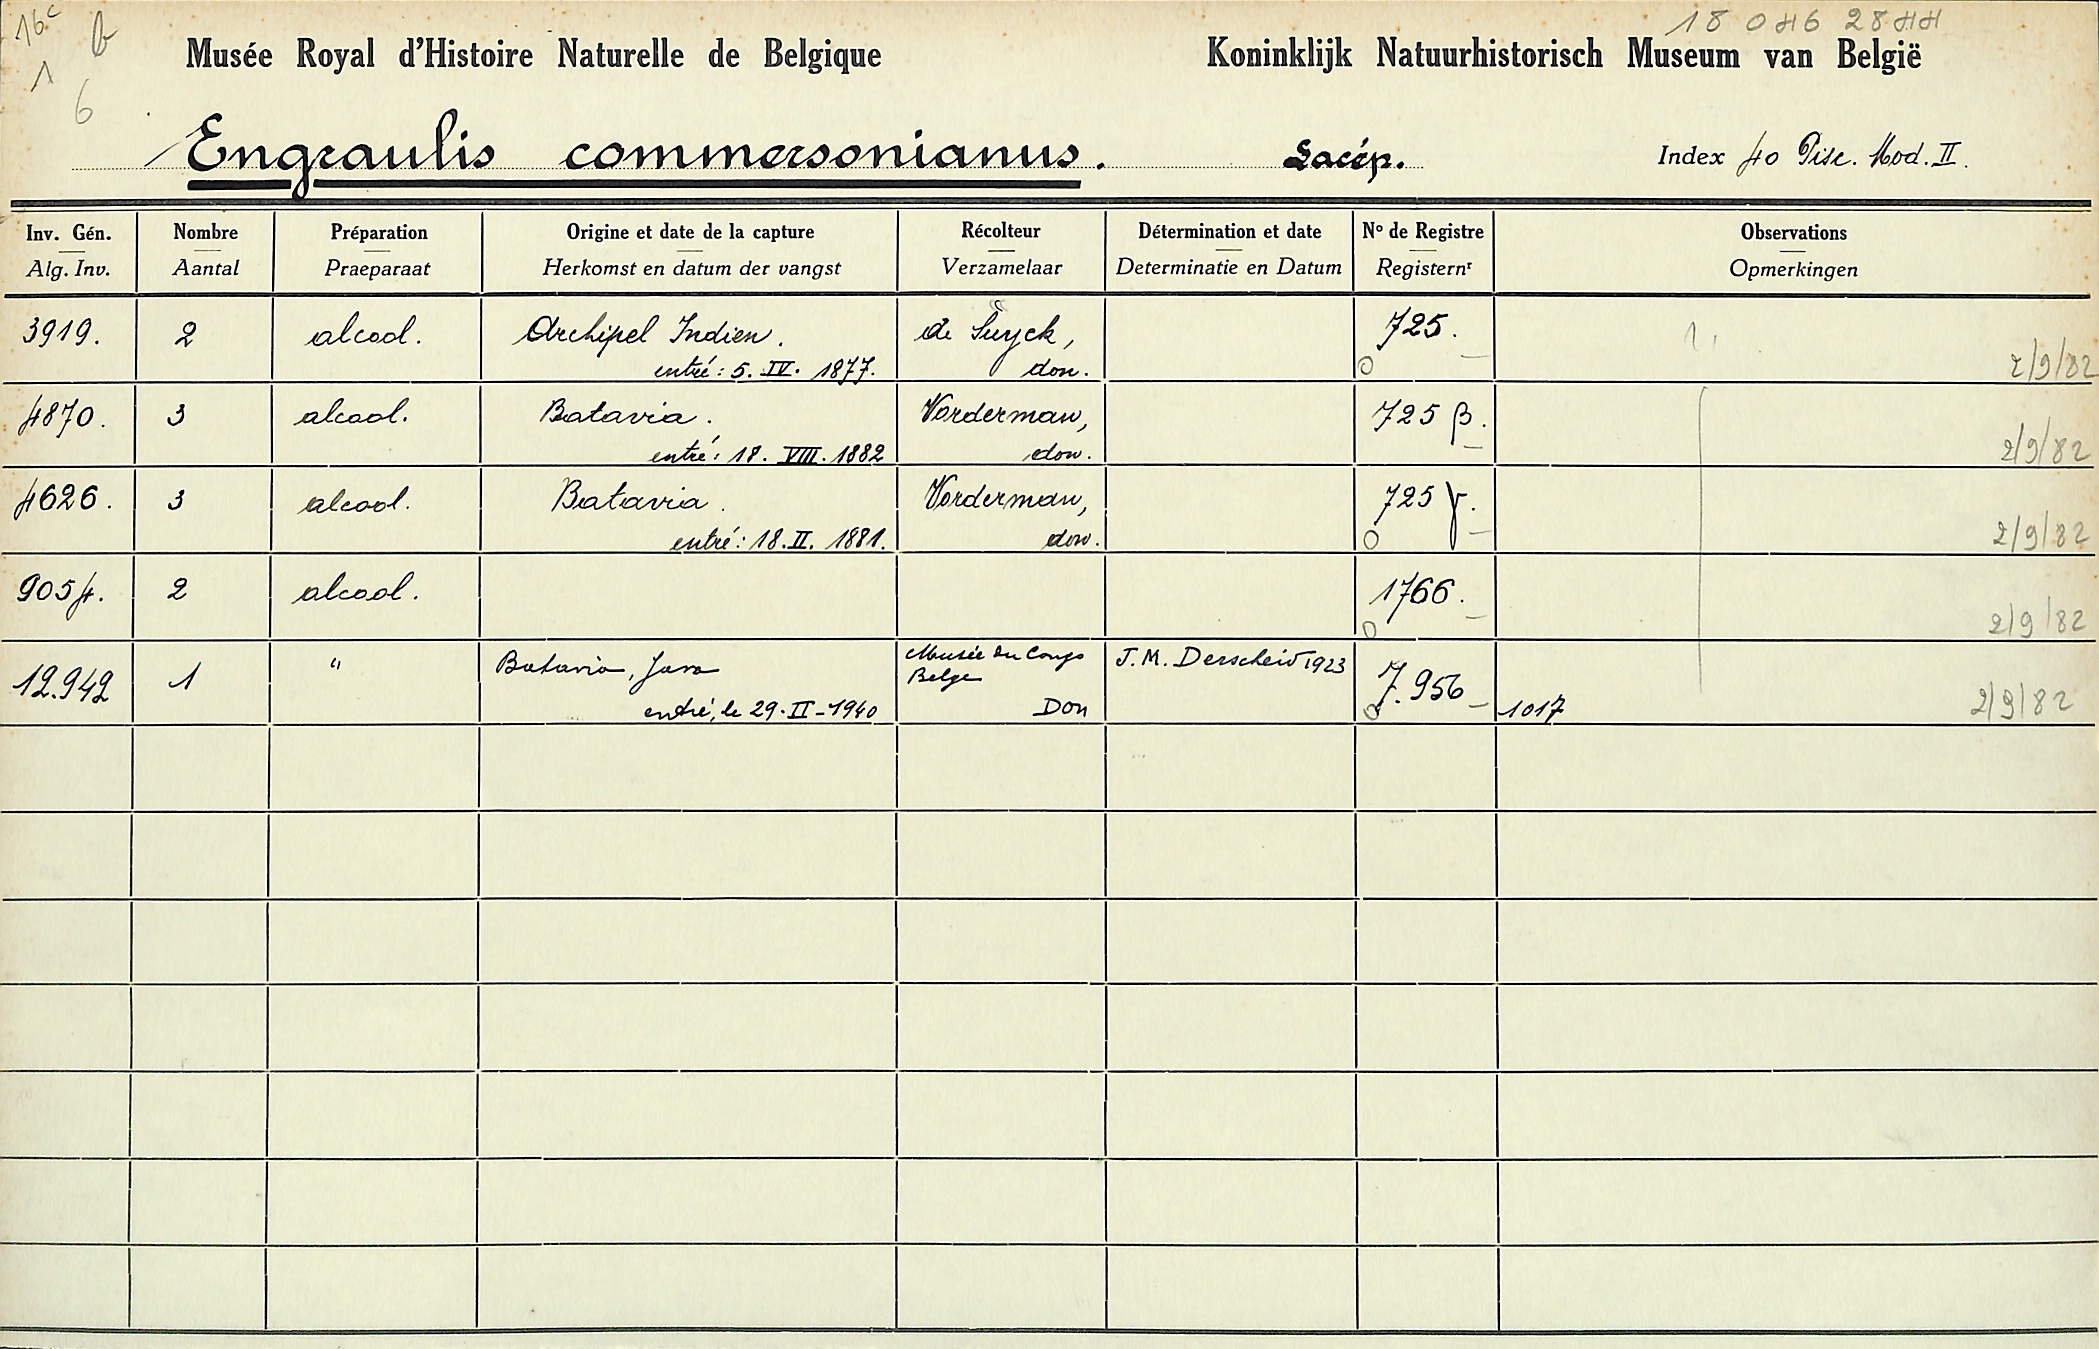 16c 18 046 2844
Musée Royal d'Histoire Naturelle de Belgique Koninklijk Natuurhistorisch Museum van België
1
6
Engraulis commersonianus. Lacép. Index 40 Pisc. Mod. II.
Inv. Gén. Nombre Préparation Origine et date de la capture Récolteur Détermination et date No de Registre Observations
Alg. Inv. Aantal Praeparaat Herkomst en datum der vangst Verzamelaar Determinatie en Datum Registernr Opmerkingen
3919. 2 alcool. Archipel Indien. de 725. 1,
entré: 5. IV. 1877. don. 2/9/82
4870. 3 alcool. Batavia. Vorderman, 725 β.
entré: 18. VIII. 1882 don. 2/9/82
4626. 3 alcool. Batavia. Vorderman, 725 γ.
entré: 18. II. 1881. don. 2/9/82
9054. 2 alcool. 1766.
2/9/82
12.942 1 " Batavia, Java Musée du Congo Belge J. M. Derscheid 1923 7.956
entré, le 29-II-1940 Don 1017 2/9/82